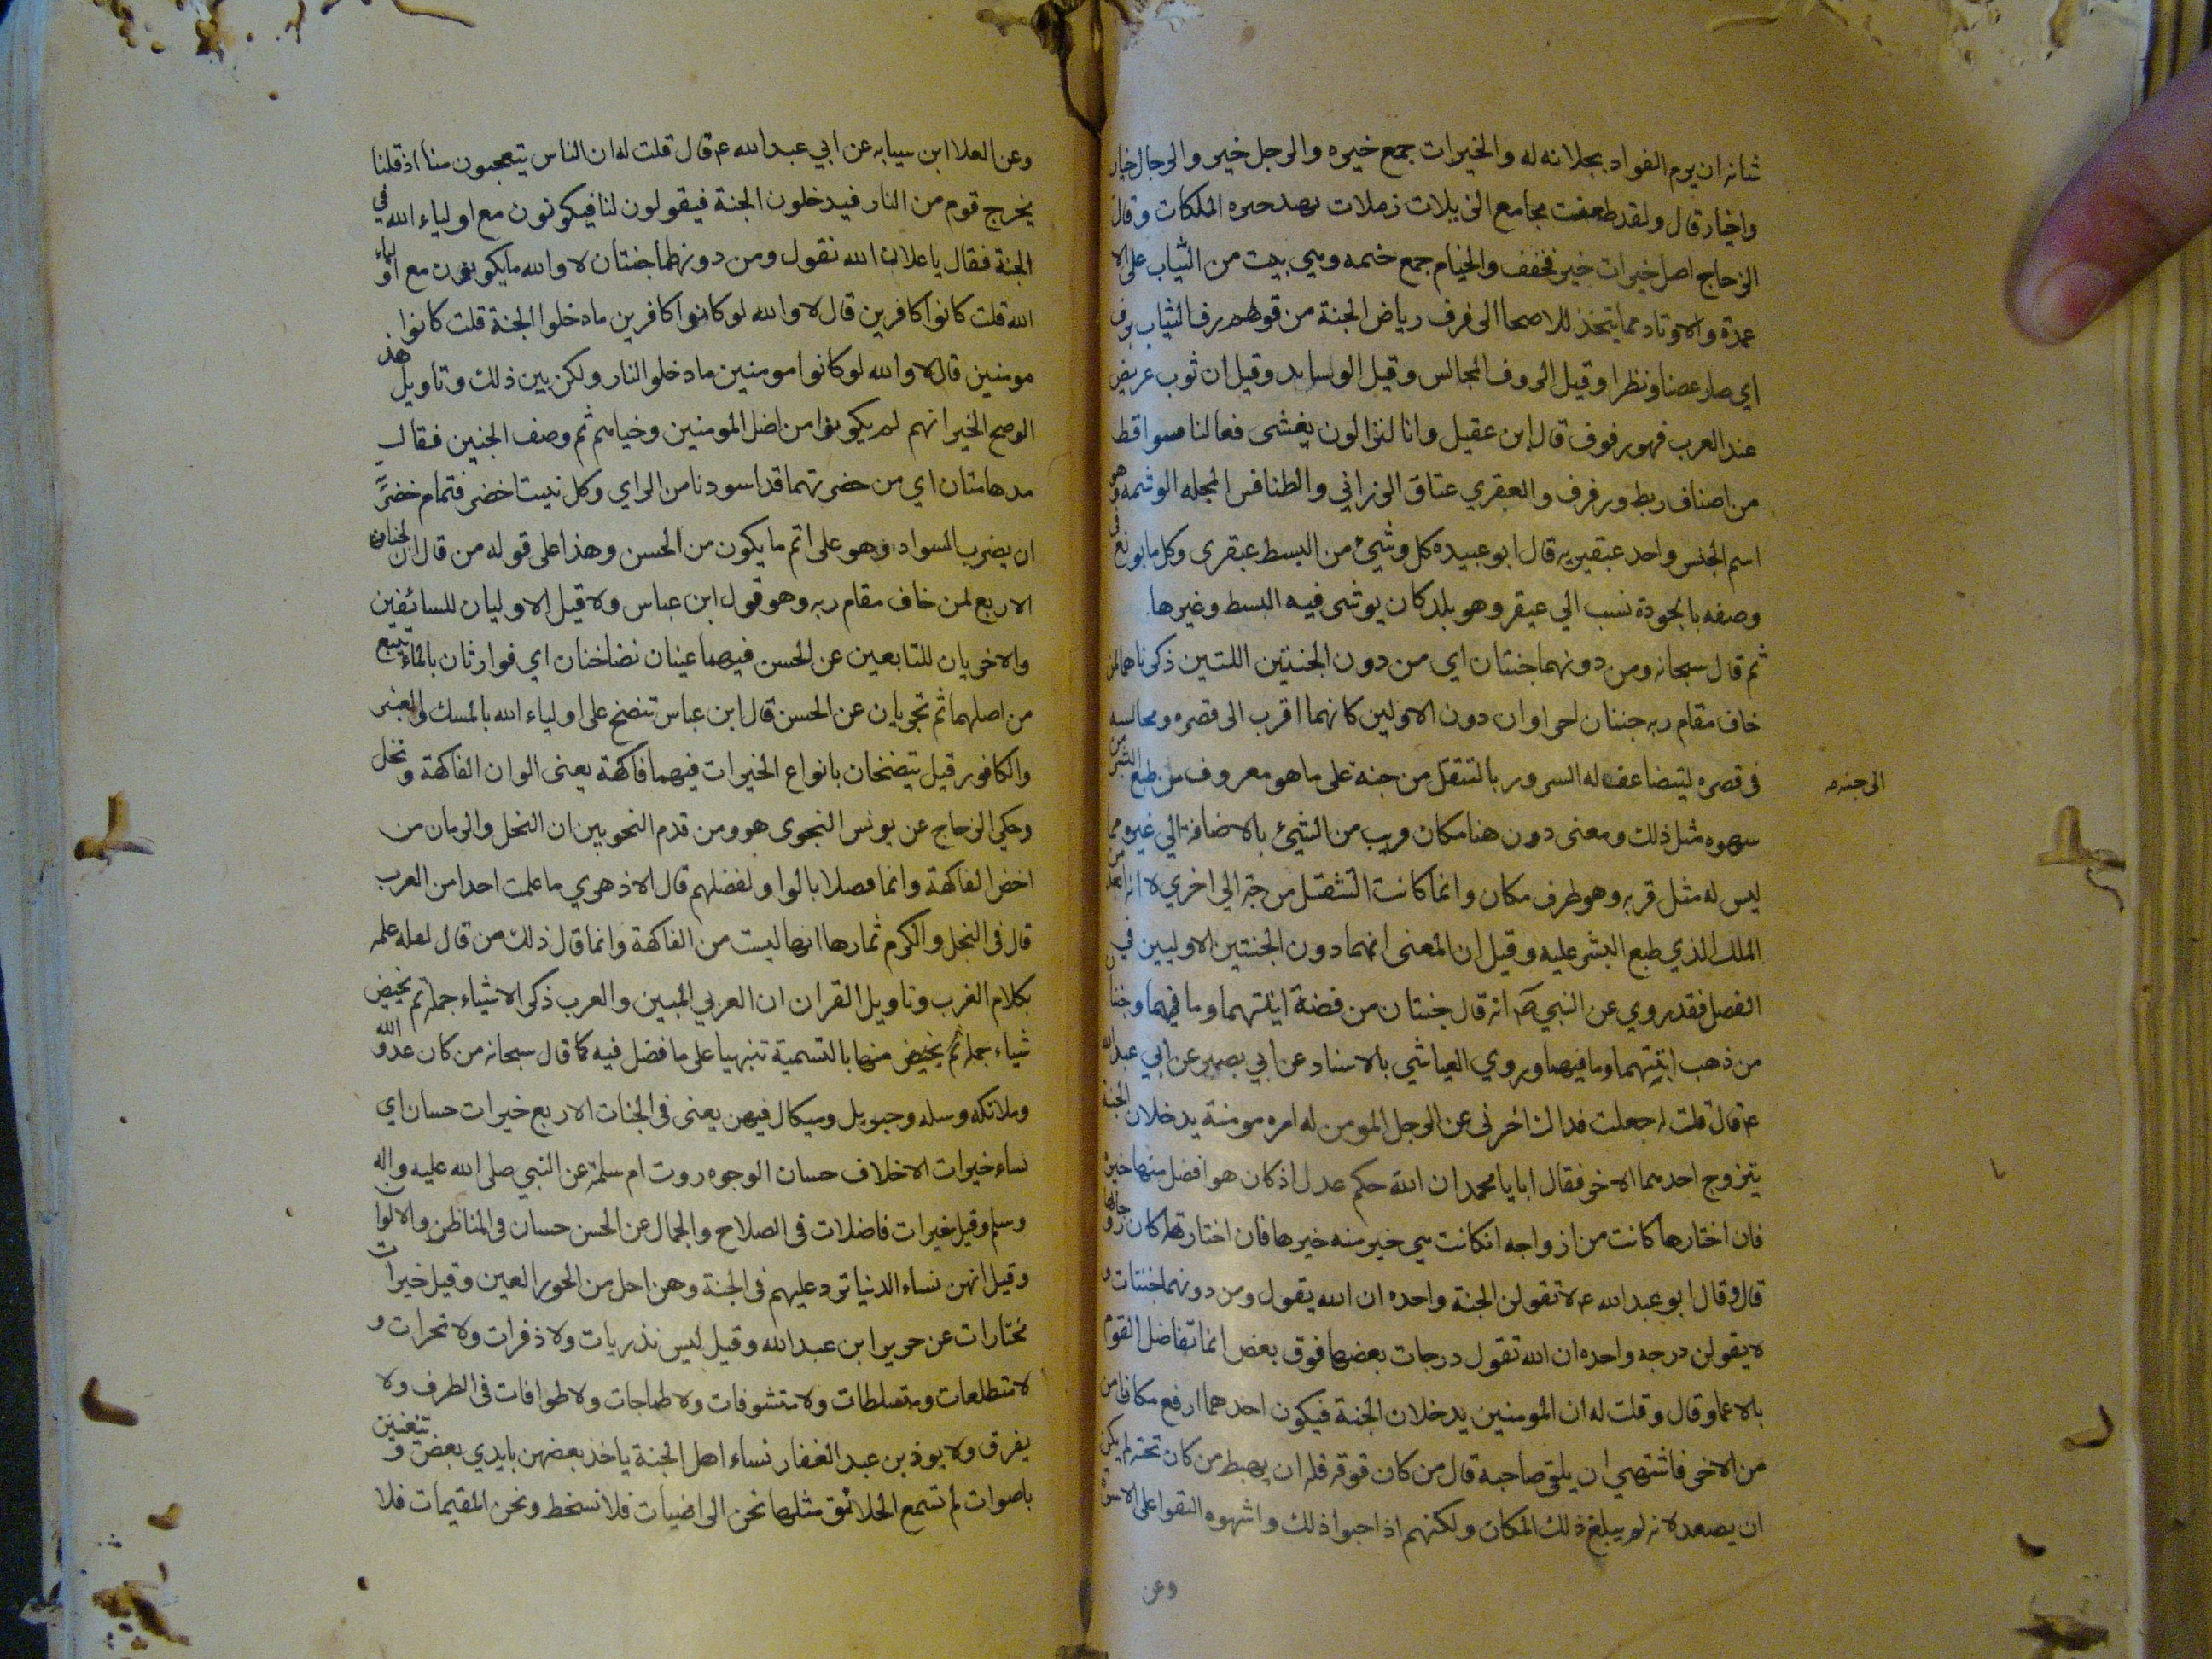 شانه ان يرم الفواد بجلانه له والخيرات جمع خيره والرجل خير والرجال خيار
واخيار قال ولقد طعنت مجامع الربلات ربلات الملكات وقال
الزجاج اصل خيرات خير فخفف والخيام جمع خيمه وهي بيت من الثياب على الا
عمدة والاوتاد مما يتخذ للاصحاا لرفرف رياض الجنة من قولهم رف الثياب يرف
اي صار غضا ونظرا وقيل الرفوف المجالس وقيل الوسايد وقيل ان ثوب عريض
عند العرب فهو رفوف قال ابن عقيل وانا لنزالون يغشى فعالنا سواقط
من اصناف ربط ورفرف والعبقري عتاق الزرابي والطنافس المجله الموشيه وهو
اسم الجنس واحد عبقريه قال ابو عبيده كل وشئ من البسط عبقرى وكل ما بولغ في
وصفه بالجودة نسب الي عبقر وهو بلد كان يوشى فيه البسط وغيرها
ثم قال سبحانه ومن دونهما جنتان اى من دون الجنتين اللتين ذكرناهما لمن
خاف مقام ربه جنتان اخراوان دون الاولين كانهما اقرب الى قصره ومجالسه
فى قصره ليتضاعف له السرور بالتنقل من جنة على ما هو معروف من طبع البشر من
الى جنه صح
شهوه مثل ذلك ومعنى دون هنا مكان قريب من الشئ بالاضافة الي غيره مما
ليس له مثل قربه وهو ظرف مكان وانما كانت التنقل من جنة الي اخري لانه
الملل الذي طبع البشر عليه وقيل ان المعنى انهما دون الجنتين الاوليين في
الفضل فقد روي عن النبي ص انه قال جنتان من فضة انيتهما وما فيهما وجنتان
من ذهب انيتهما وما فيهما وروي العياشي بالاسناد عن ابي بصير عن ابي عبدالله
ع قال قلت له جعلت فداك اخرنى عن الرجل المومن له امره مومنة يدخلان الجنة
يتزوج احدهما الاخر فقال ابا يا محمد ان الله حكم عدل اذ كان هو افضل منها خيره
فان اختارها كانت من ازواجه انكانت هي خير منه خيرها فان اختارته كان زوجالها
قال وقال ابو عبد الله ع لا تقولن الجنة واحده ان الله يقول ومن دونهما جنتات و
لا يقولن درجه واحده ان الله تقول درجات بعضها فوق بعض انما تفاضل القوم
بالاعما وقال وقلت له ان المومنين يدخلان الجنة فيكون احدهما ارفع مكانا من
من الاخر فاشتهي ان يلقى صاحبه قال من كان فوقه فله ان يهبط من كان تحته لم يكن
ان يصعد لانه لم يبلغ ذلك المكان ولكنهم اذا احبوا ذلك واشهوه التقوا على الاسرة
وعن
وعن العلا ابن سيابه عن ابي عبد الله ع قال قلت له ان الناس يتعجبون منا اذ قلنا
يخرج قوم من النار فيدخلون الجنة فيقولون لنا فيكونون مع اولياء الله في
الجنة فقال يا علا ان الله تقول ومن دونهما جنتان لا والله ما يكونون مع اولياء
الله قلت كانوا كافرين قال لا والله لو كانوا كافرين ما دخلوا الجنة قلت كانوا
مومنين قال لا والله لو كانوا مومنين ما دخلو النار ولكن بين ذلك وتاويل هذ
الوصح الخير انهم لم يكونوا من افضل المومنين وخيارهم ثم وصف الجنين فقال
مدهامتان اي من خضرتهما قد اسودنا من الراي وكل نبت اخضر فتمام خضرته
ان يضرب السواد وهو على اتم ما يكون من الحسن وهذا على قوله من قال ان الجنان
الاربع لمن خاف مقام ربه وهو قول ابن عباس ولا قيل الاوليان للسائفين
والاخريان للتابعين عن الحسن فيهما عينان نضاختان اي فوارتان بالماء تنبع
من اصلهما ثم تجريان عن الحسن قال ابن عباس تنضخ على اولياء الله بالمسك والعنبر
والكافور قيل تنضخان بانواع الخيرات فيهما فاكهة يعنى الوان الفاكهة ونخل
وحكي الزجاج عن يونس النحوى هو ومن قدم النحويين ان النخل والرمان من
افضل الفاكهة وانما فصلا بالواو لفضلهم قال الازهري ما علمت احدا من العرب
قال فى النخل والكرم ثمارها انها ليست من الفاكهة وانما قال ذلك من قال لعله علمه
بكلام العرب وتاويل القران ان العربي المبين والعرب ذكر الاشياء جملة ثم يخص
شياء جمله ثم يخص منها بالتسمية تنبهيا على ما فضل فيه كما قال سبحانه من كان عدو الله
وملائكه وسله وجبريل وميكال فيهن يعنى فى الجنات الاربع خيرات حسان اي
نساء خيرات الاخلاف حسان الوجوه روت ام سلمة عن النبي صلى الله عليه واله
وسلم وقيل خيرات فاضلات فى الصلاح والجمال عن الحسن حسان فى المناظر والالوان
وقيل انهن نساء الدنيا ترد عليهم فى الجنة وهن احل من الحور العين وقيل خيرات
مختارات عن جرير ابن عبد الله وقيل ليس نذريات ولا ذفرات ولا نحرات و
لا متطلعات ومتسلطات ولا متشوفات ولا طماحات ولا طوافات فى الطرف ولا
يفرق ولا يوذ بن عبد الغفار نساء اهل الجنة ياخذ بعضهن بايدي بعض و تتغنين
باصوات لم تسمع الخلائق مثلها نحن الراضيات فلا نسخط ونحن المقيمات فلا